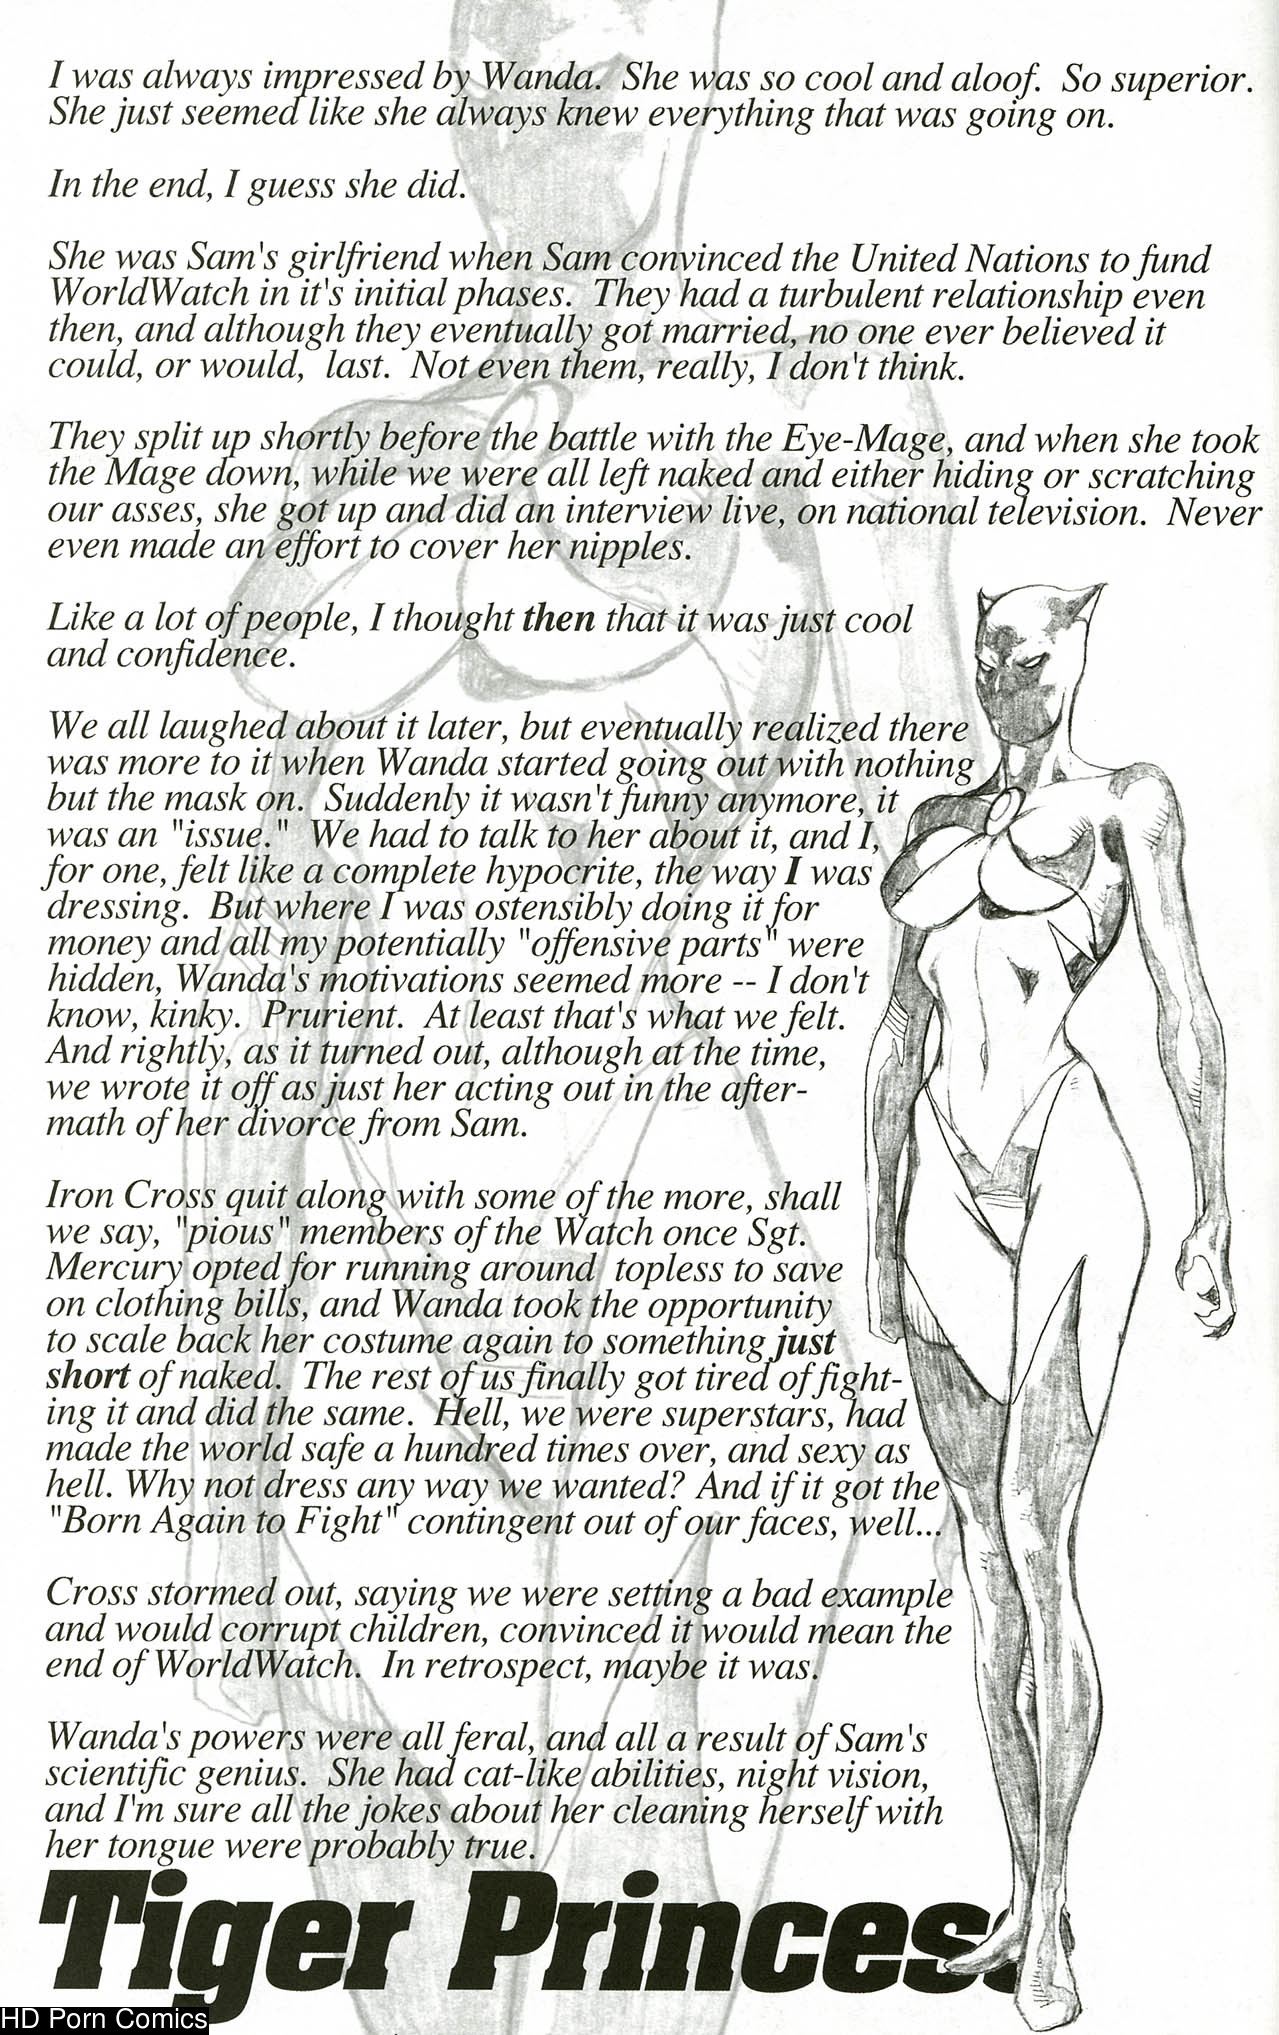 I was always impressed by Wanda.  She was so cool and aloof.  So superior.
She just seemed like she always knew everything that was going on.
In the end, I guess she did.
She was Sam's girlfriend when Sam convinced the United Nations to fund
WorldWatch in it's initial phases.  They had a turbulent relationship even
then, and although they eventually got married, no one ever believed it
could, or would,  last.  Not even them, really, I don't think.
They split up shortly before the battle with the Eye-Mage, and when she took
the Mage down, while we were all left naked and either hiding or scratching
our asses, she got up and did an interview live, on national television.  Never
even made an effort to cover her nipples.
Like a lot of people, I thought then that it was just cool
and confidence.
We all laughed about it later, but eventually realized there
was more to it when Wanda started going out with nothing
but the mask on.  Suddenly it wasn't funny anymore, it
was an "issue."  We had to talk to her about it, and I,
for one, felt like a complete hypocrite, the way I was
dressing.  But where I was ostensibly doing it for
money and all my potentially "offensive parts" were
hidden, Wanda's motivations seemed more -- I don't
know, kinky.  Prurient.  At least that's what we felt.
And rightly, as it turned out, although at the time,
we wrote it off as just her acting out in the after-
math of her divorce from Sam.
Iron Cross quit along with some of the more, shall
we say, "pious" members of the Watch once Sgt.
Mercury opted for running around  topless to save
on clothing bills, and Wanda took the opportunity
to scale back her costume again to something just
short of naked.  The rest of us finally got tired of fight-
ing it and did the same.  Hell, we were superstars, had
made the world safe a hundred times over, and sexy as
hell. Why not dress any way we wanted? And if it got the
"Born Again to Fight" contingent out of our faces, well...
Cross stormed out, saying we were setting a bad example
and would corrupt children, convinced it would mean the
end of WorldWatch.  In retrospect, maybe it was.
Wanda's powers were all feral, and all a result of Sam's
scientific genius.  She had cat-like abilities, night vision,
and I'm sure all the jokes about her cleaning herself with
her tongue were probably true.
Tiger Princess
HD Porn Comics